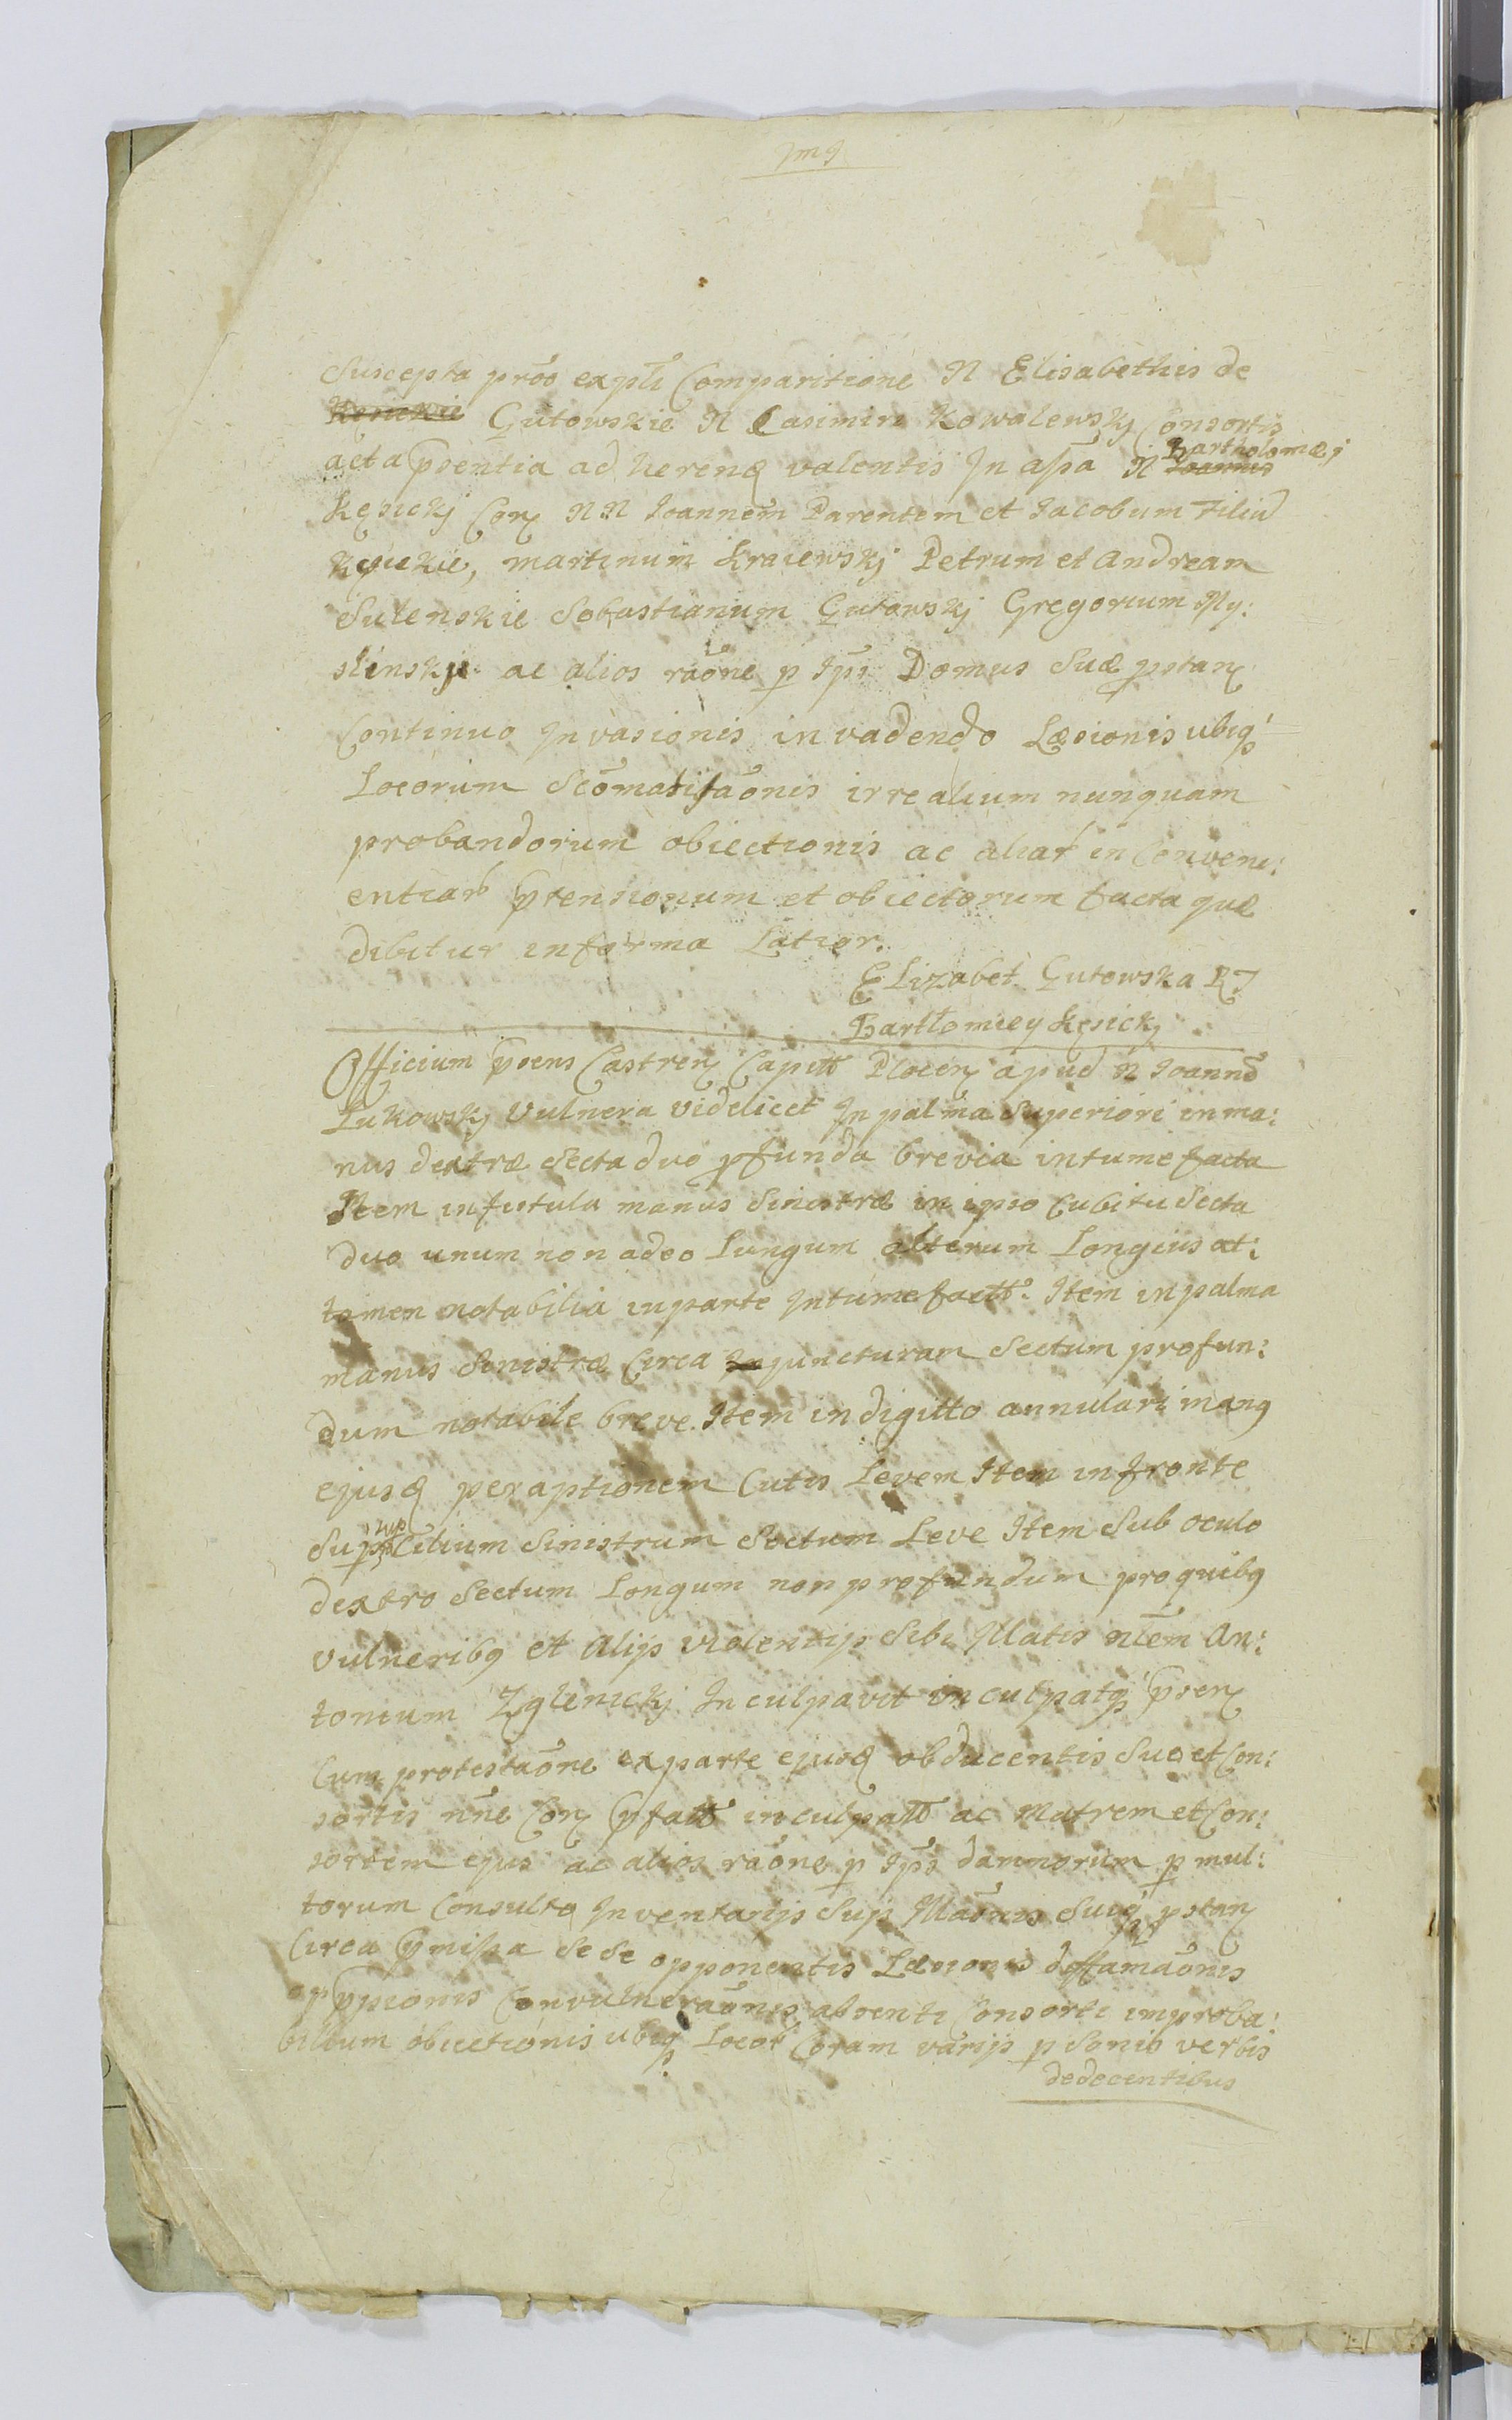 Suscepta prõo expłi Comparitione N Elisabethis de
Kęsickie Gutowskie N Casimiri Kowalewskj Consortis
acta psentia ad herenđ valentis In assa N Joannis Bartholomæj
Kęsickj Con NN Joannem Parentem et Jacobum Filiũ
Kęsickie, Martinum Kraiewskj Petrum et Andream
Sulenskie Sebastianum Gutowskj Gregorium My:
slinskj ac alios raõne p Ipĩ Domus Suæ pstan
Continuo Invasionis invadendo Læsionis ubiq;
Locorum Scõmatisaõnis irrealium nunquam
probandorum obiectionis ac aliar inConveni:
entiar ptensionum et obiectorum facta quæ
dibitur in forma Latior.
Elizabet Gutowska RJ
Bartłomiey Kęsickj
Officium psens Castren Capitt Plocen apud N Joannẽ
Lukowskj Vulnera videlicet In palma Superiori in ma:
nus dextræ Secta duo pfunda brevia intumefacta
Item in fistula manus Sinistræ in ipso Cubitu Secta
duo unum non adeo Lungum alterum Longius at:
tamen notabilia in parte Intumefactt. Item in palma
manus Sinistræ Circa In juncturam Sectum profun:
dum notabile breve. Item in digitto annulari manq
ejusđ peraptionem Cutis Levem Item in fronte
Sup sup Cilium Sinistrum Sectum Leve Item Sub oculo
dextro Sectum Longum non profundum pro quibq
vulneribq et Alijs violentijs Sibi Illatis nłem An:
tonium Zglenickj Inculpavit inculpatq; psen
Cum protestaõne ex parte ejusđ obducentis Sue et Con:
sortis nñe Con pfatt inculpatt ac Matrem et Con:
sortem ejus ac alios raõne p Ipõs damnorum p mul:
torum Consulto Inventarijs Sup Illaõnis Suiq; pstan
Circa pmissa Se Se opponentis Læsionis deffamaõnis
opppsionis Convulneraõnis absenti Consorte improba:
bilium obiectionis ubiq; Locor Coram varijs psonis verbis
dedecentibus